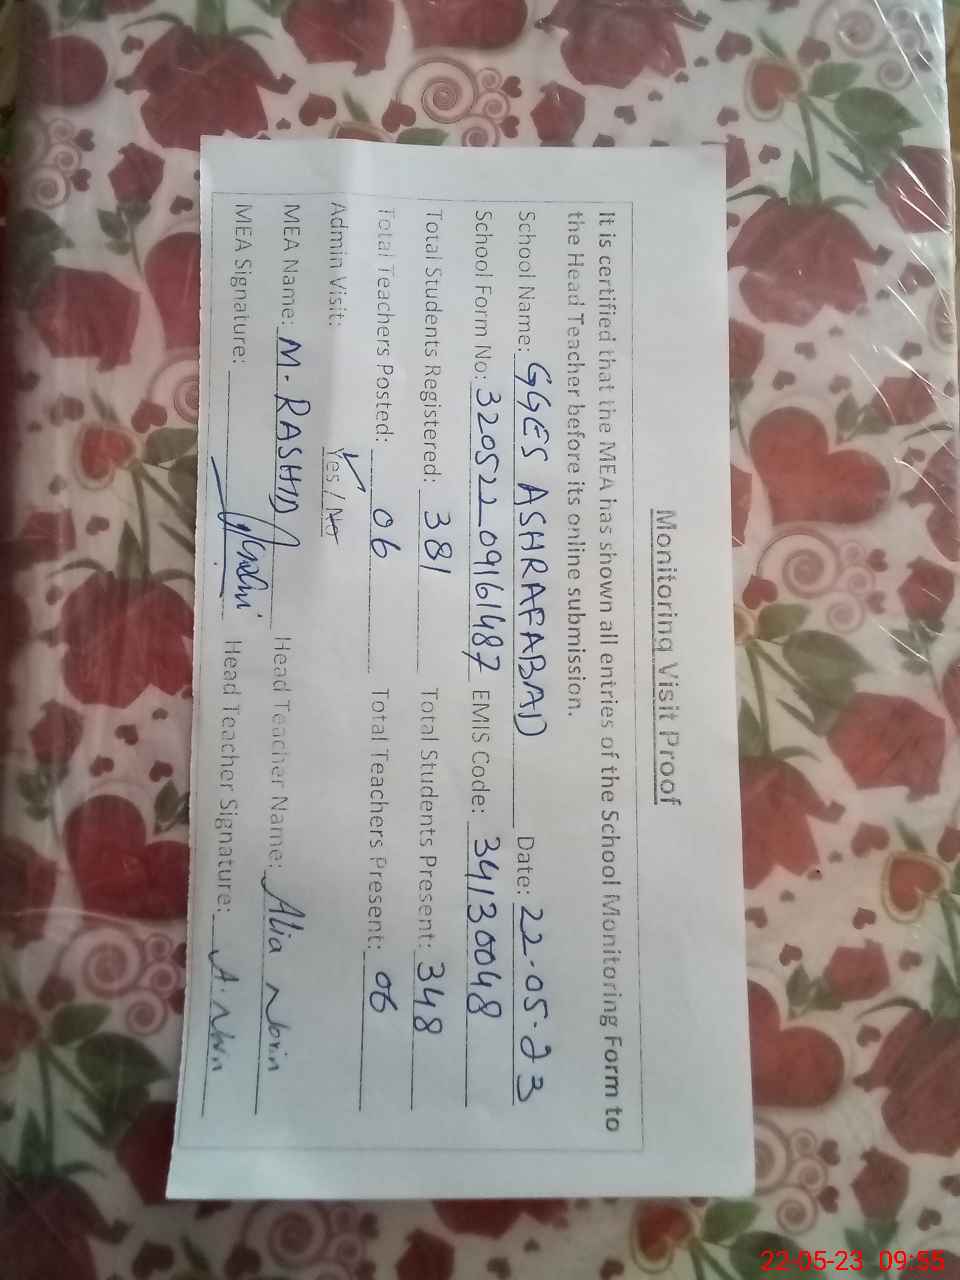 Monitoring Visit Proof
It is certified that the MEA has shown all entries of the School Monitoring Form to
the Head Teacher before its online submission.
School Name: GGES ASHRAFABAD Date: 22-05-23
School Form No: 32052209161487 EMIS Code: 34130048
Total Students Registered: 381 Total Students Present: 348
Total Teachers Posted: 06 Total Teachers Present: 06
Admin Visit: Yes / No
MEA Name: M. RASHID Head Teacher Name: Alia Norin
MEA Signature: Head Teacher Signature: A. Norin
22-05-23 09:55